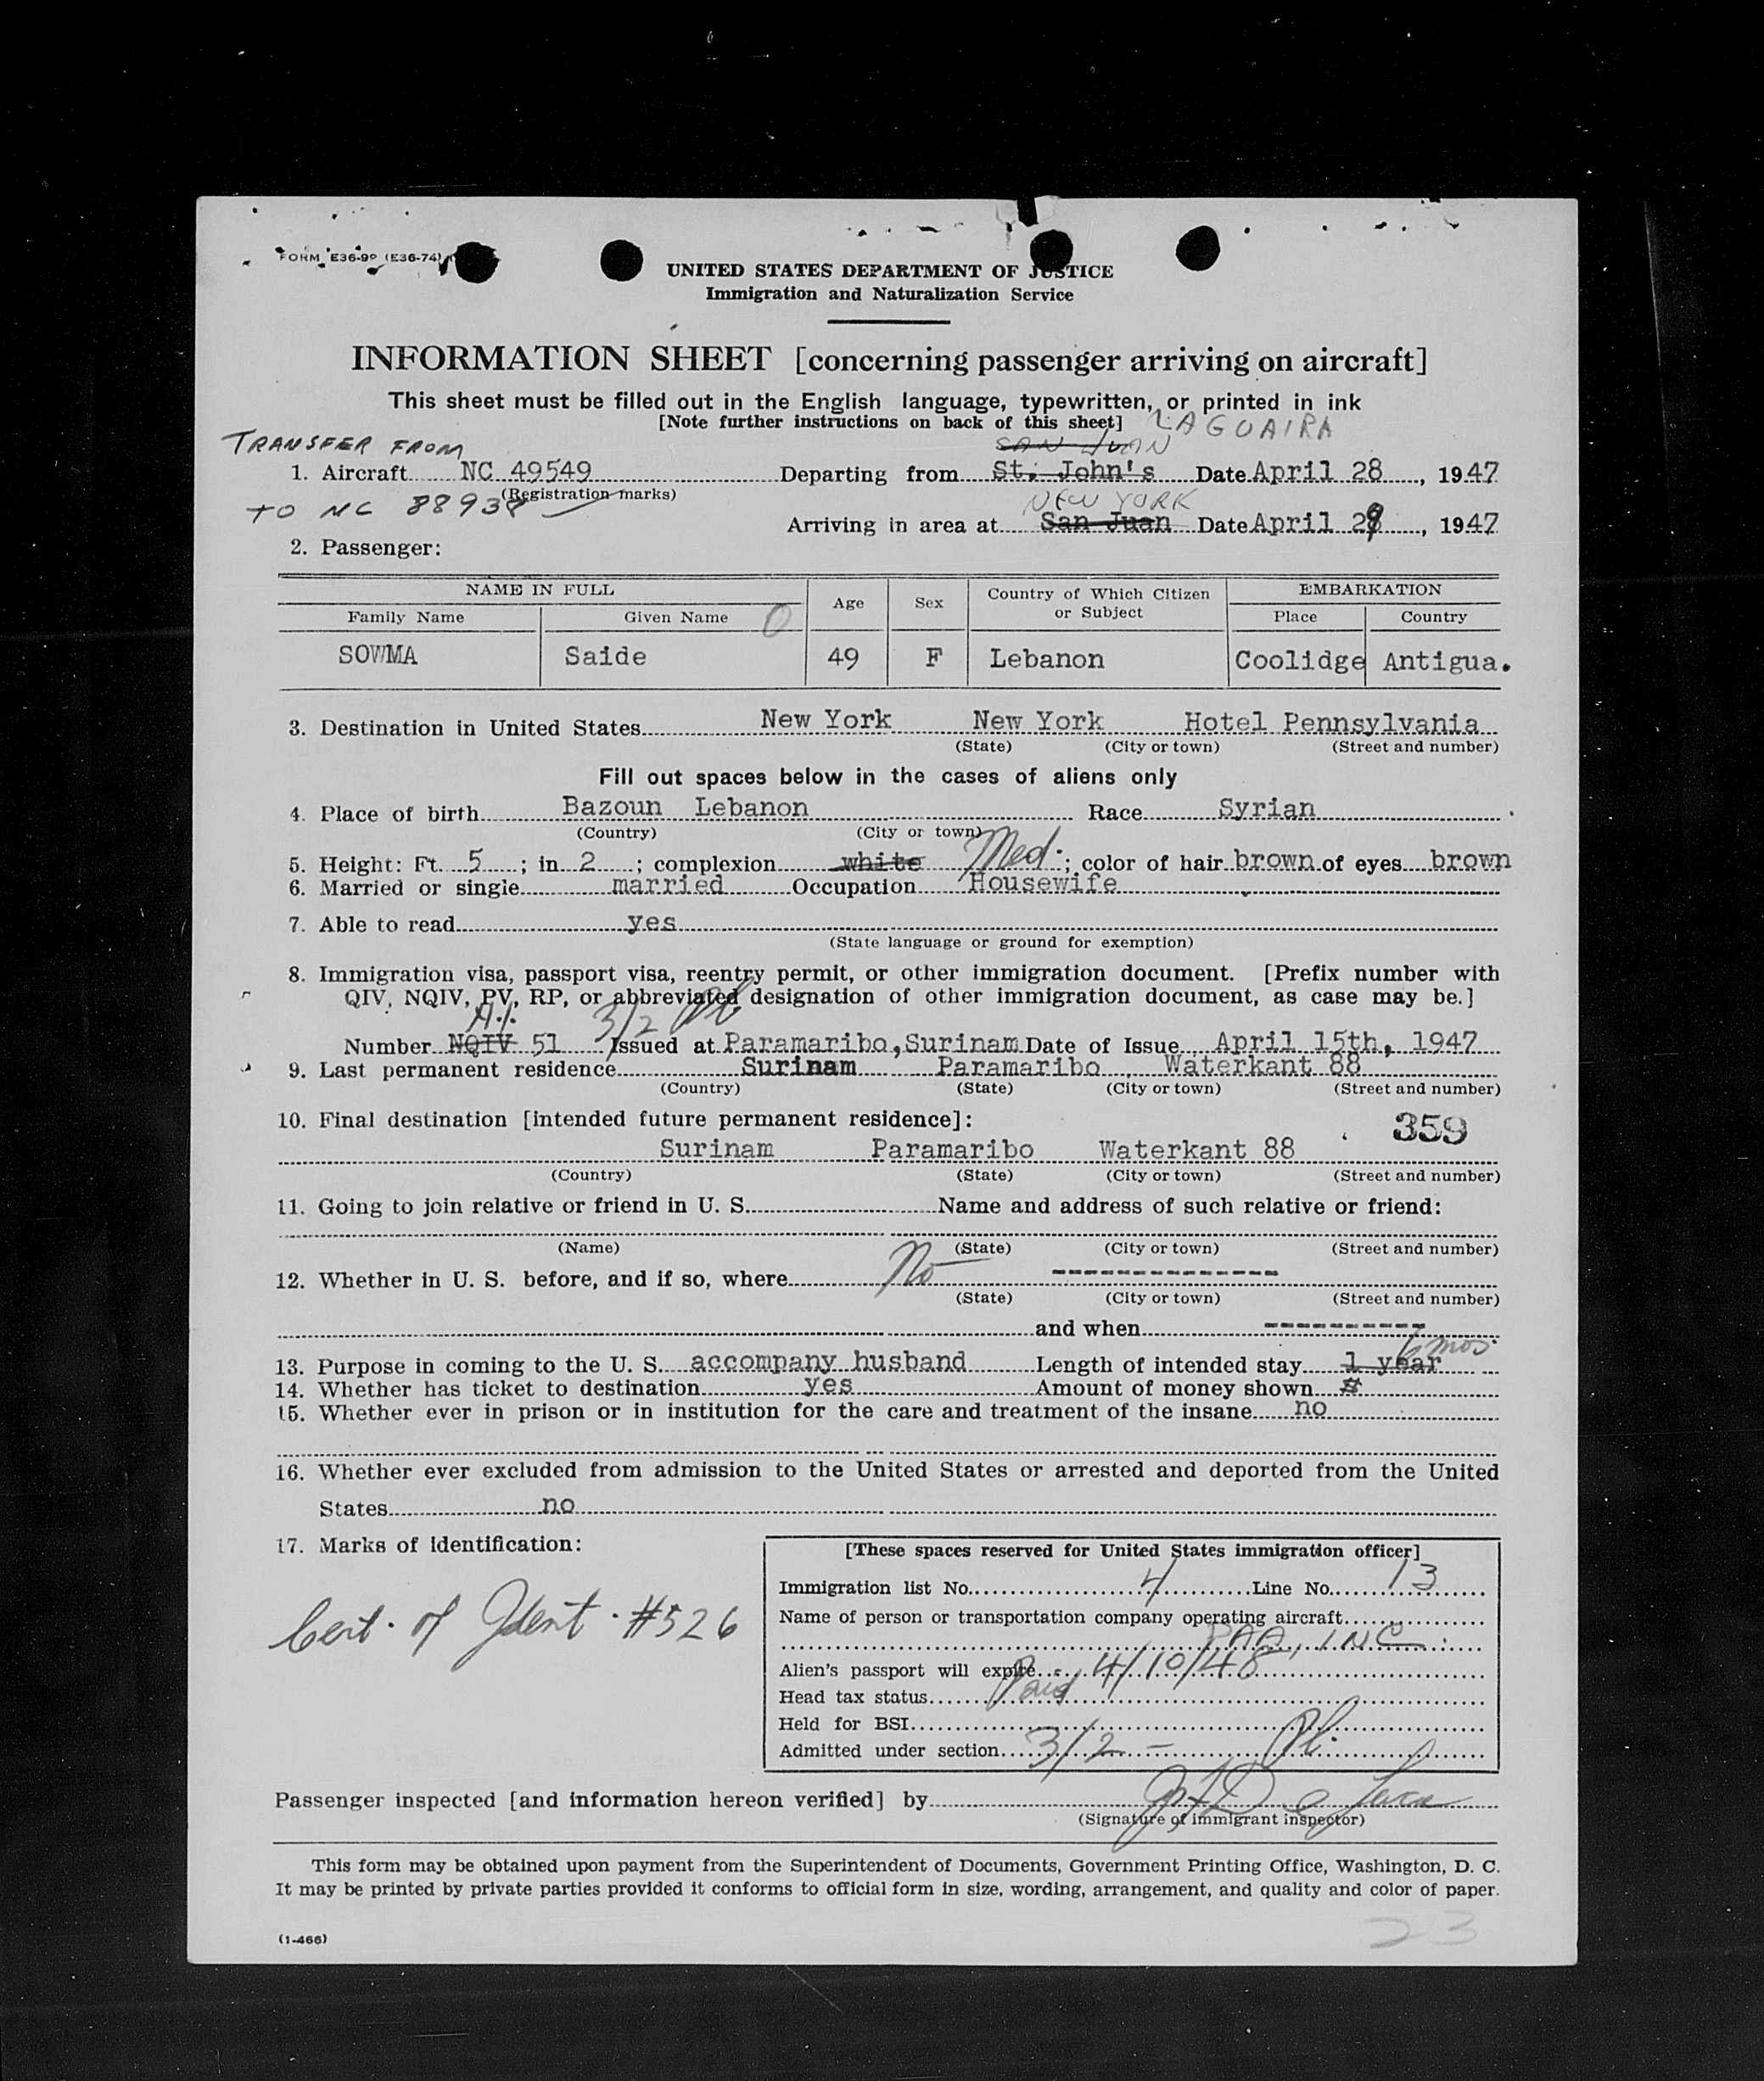 FORM E36-99 (E36-74)
UNITED STATES DEPARTMENT OF JUSTICE
Immigration and Naturalization Service
INFORMATION SHEET [concerning passenger arriving on aircraft]
This sheet must be filled out in the English language, typewritten, or printed in ink
[Note further instructions on back of this sheet] LAGUAIRA
TRANSFER FROM SAN JUAN
1. Aircraft NC 49549 Departing from St. John's Date April 28, 1947
(Registration marks)
TO NC 88938 NEW YORK
Arriving in area at San Juan Date April 29, 1947
2. Passenger:
NAME IN FULL Age Sex Country of Which Citizen or Subject EMBARKATION
Family Name Given Name 0 Place Country
SOWMA Saide 49 F Lebanon Coolidge Antigua.
3. Destination in United States New York New York Hotel Pennsylvania
(State) (City or town) (Street and number)
Fill out spaces below in the cases of aliens only
4. Place of birth Bazoun Lebanon Race Syrian
(Country) (City or town)
5. Height: Ft. 5; in 2; complexion white Med.; color of hair brown of eyes brown
6. Married or single married Occupation Housewife
7. Able to read yes
(State language or ground for exemption)
8. Immigration visa, passport visa, reentry permit, or other immigration document. [Prefix number with
QIV, NQIV, PV, RP, or abbreviated designation of other immigration document, as case may be.]
3/2
Number NQIV 51 Issued at Paramaribo, Surinam Date of Issue April 15th, 1947
9. Last permanent residence Surinam Paramaribo Waterkant 88
(Country) (State) (City or town) (Street and number)
10. Final destination [intended future permanent residence]:
359
Surinam Paramaribo Waterkant 88
(Country) (State) (City or town) (Street and number)
11. Going to join relative or friend in U. S. Name and address of such relative or friend:
(Name) (State) (City or town) (Street and number)
12. Whether in U. S. before, and if so, where No --------------
(State) (City or town) (Street and number)
and when ----------
6 mos.
13. Purpose in coming to the U. S. accompany husband Length of intended stay 1 year
14. Whether has ticket to destination yes Amount of money shown $
15. Whether ever in prison or in institution for the care and treatment of the insane no
16. Whether ever excluded from admission to the United States or arrested and deported from the United
States no
17. Marks of identification:
Cert. of Ident. #526
[These spaces reserved for United States immigration officer]
Immigration list No. 4 Line No. 13
Name of person or transportation company operating aircraft
PAA, INC.
Alien's passport will expire 4/10/48
Head tax status Paid
Held for BSI
Admitted under section 3/2 -
Passenger inspected [and information hereon verified] by
(Signature of immigrant inspector)
This form may be obtained upon payment from the Superintendent of Documents, Government Printing Office, Washington, D. C.
It may be printed by private parties provided it conforms to official form in size, wording, arrangement, and quality and color of paper.
23
(1-466)